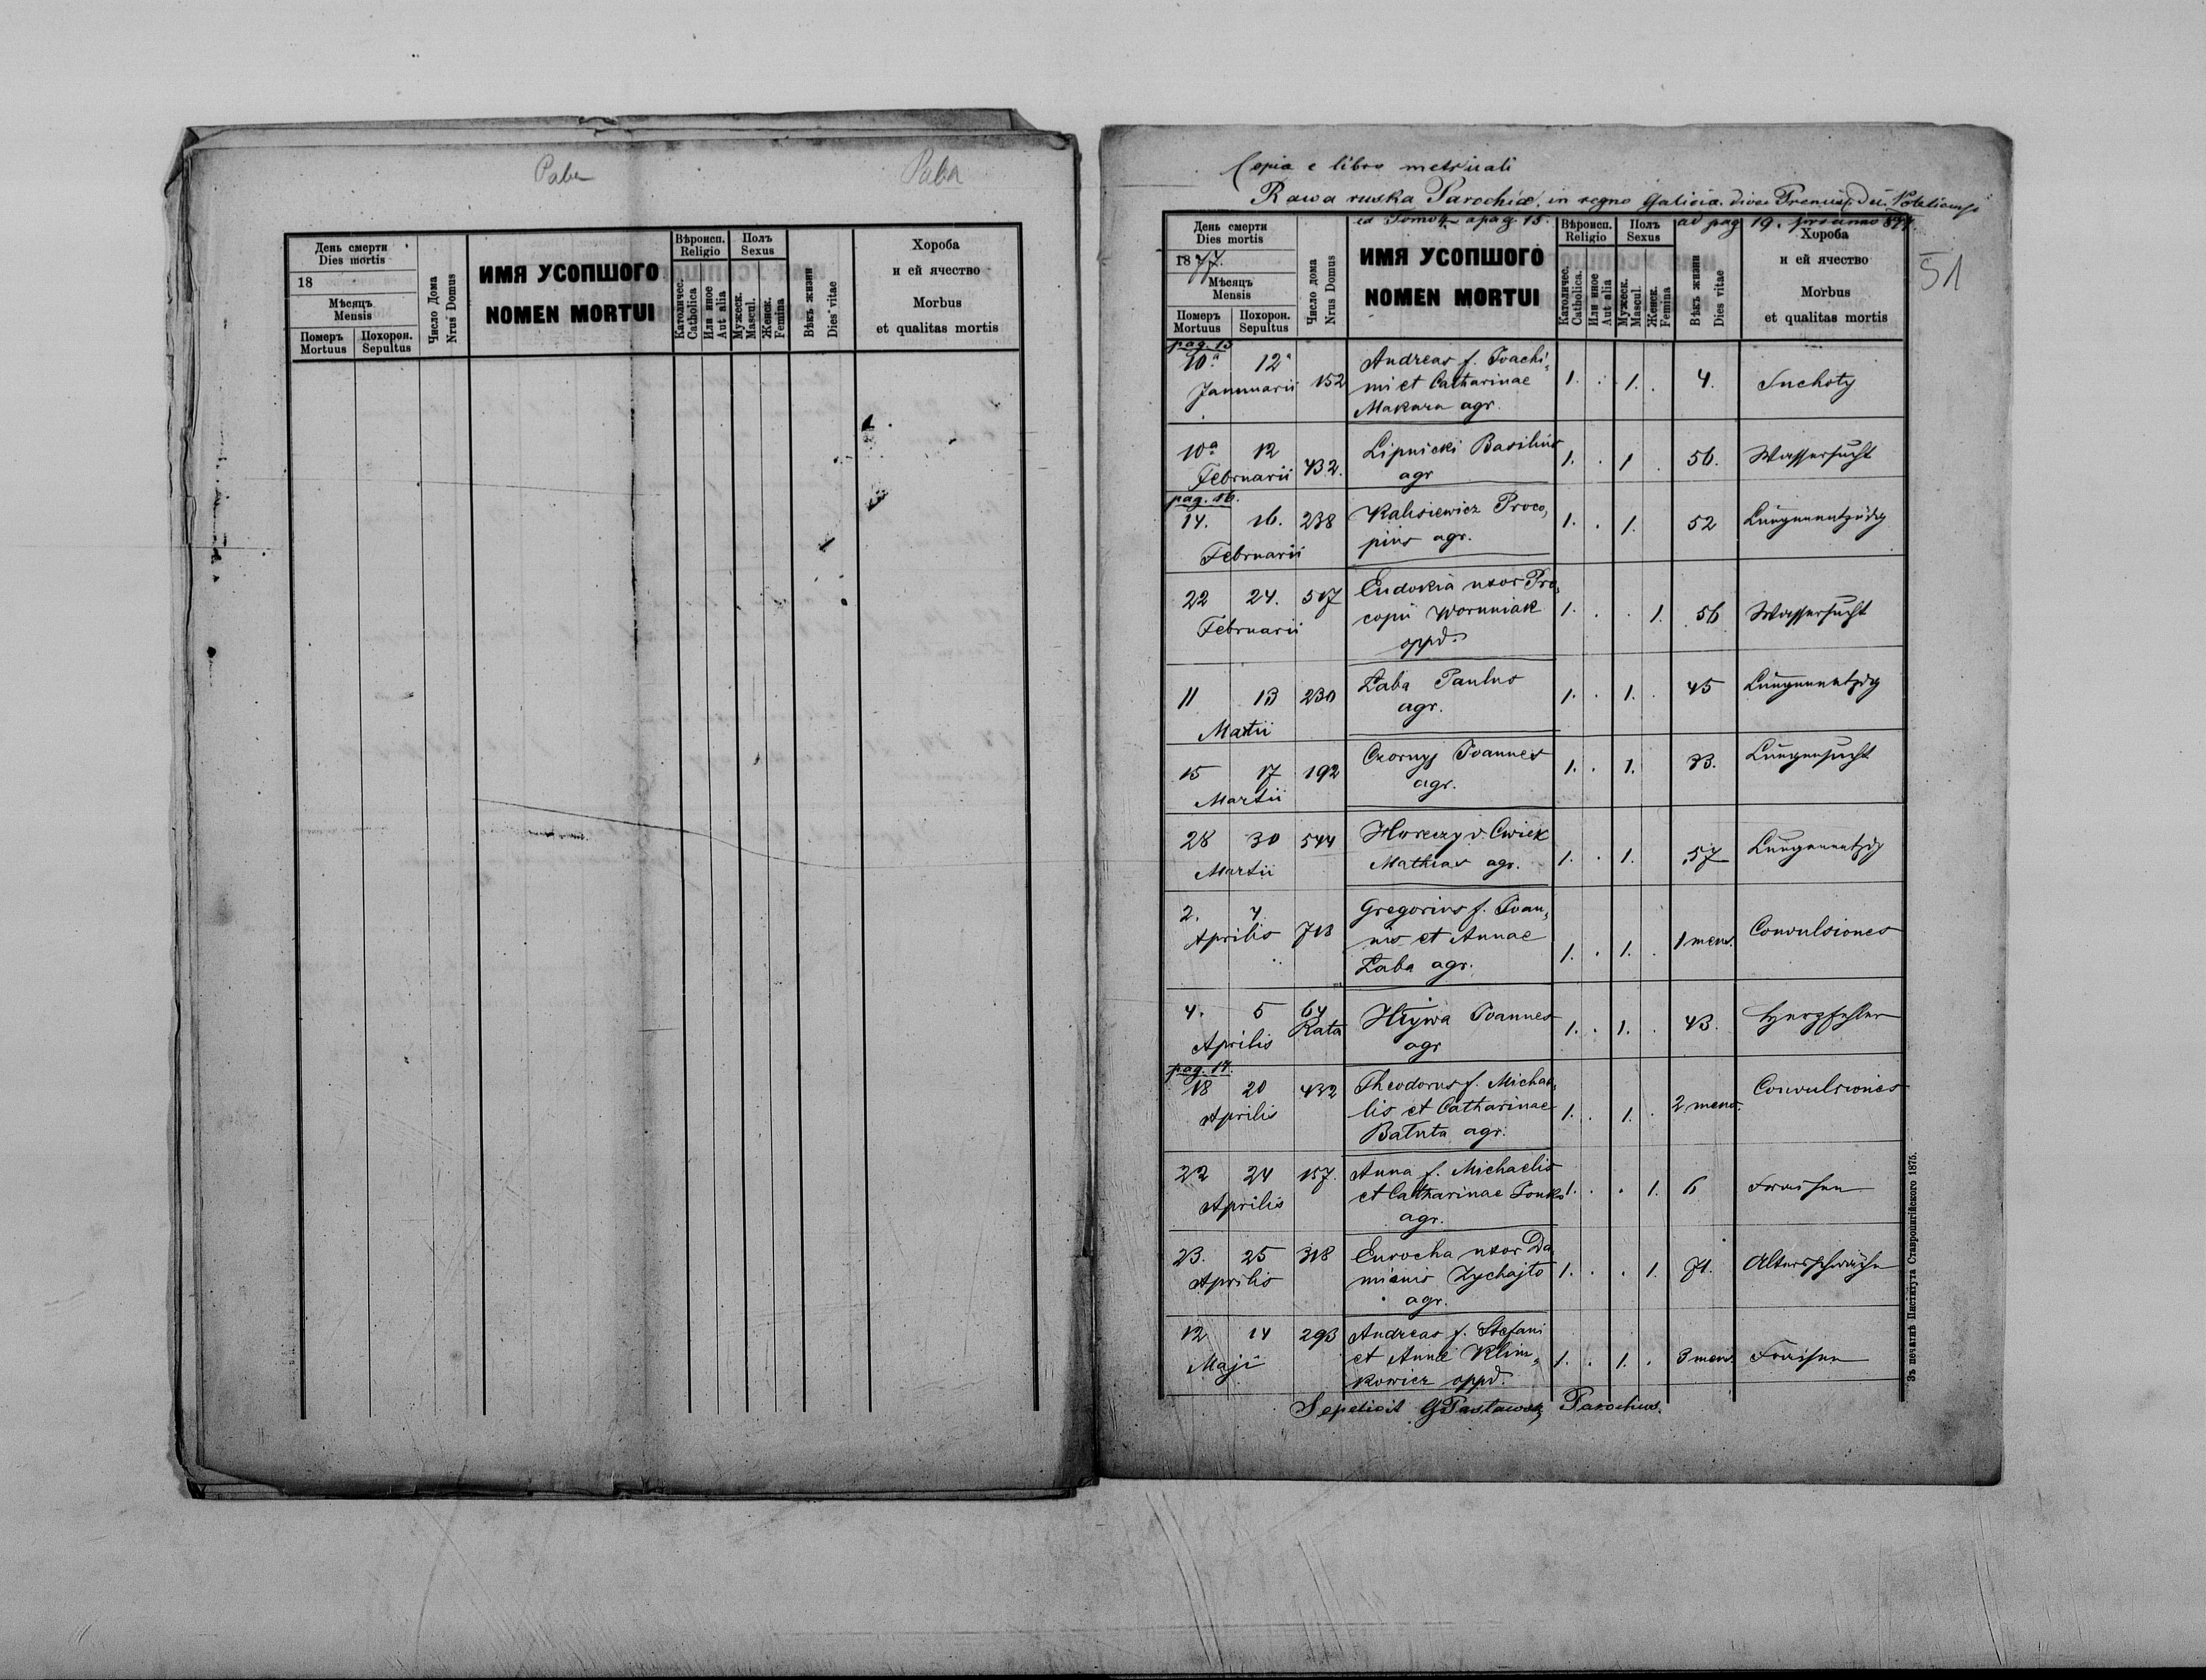 Рава
Рава
День смерти
Dies mortis
18
Мѣсяцъ
Mensis
Померъ
Mortuus
Похорон.
Sepultus
Число Дома
Nrus Domus
ИМЯ УСОПШОГО
NOMEN MORTUI
Вѣроисп.
Religio
Католичес.
Catholica
Или иное
Aut alia
Полъ
Sexus
Мужеск.
Mascul.
Женск.
Femina
Вѣкъ жизни
Dies vitae
Хороба
и ей ячество
Morbus
et qualitas mortis
Copia e libro metricali
Rawa ruska Parochiæ, in regno Galicia
ad pag 19.
51
День смерти
Dies mortis
1877.
Мѣсяцъ
Mensis
Померъ
Mortuus
Похорон.
Sepultus
Число дома
Nrus Domus
ИМЯ УСОПШОГО
NOMEN MORTUI
Вѣроисп.
Religio
Католичес.
Catholica.
Или иное
Aut alia
Полъ
Sexus
Мужеск.
Mascul.
Женск.
Femina
Вѣкъ жизни
Dies vitae
Хороба
и ей ячество
Morbus
et qualitas mortis
pag. 15
10ª 12ª Andreas f. Joachi-
Januuarii 152 mi et Catharinae 1. . 1. . 4. Suchoty
Makara agr.
10ª 12 Lipnicki Basilius
Februarii 432. agr 1. . 1 . 56. Wassersucht
pag. 16.
14. 16. 238 Kalisiewicz Proco,
Februarii pius agr. 1. . 1. 52 Lungenentzdg
22 24. 517 Eudokia uxor Pro,
Februarii copii Worniak 1. . . 1. 56 Wassersucht
oppd.
11 13 230 Żaba Paulus 1. . 1. . 45 Lungenentzdg
Martii agr.
15 17 192 Czornyj Joannes 1. . 1. 33. Lungensucht
Martii agr.
28 30 544 Hureczy v. Cwiek
Martii Mathias agr. 1. . 1. 57 Lungenentzdg
2. 4 Gregorius f. Joan,
Aprilis 713 nis et Annae 1. . 1. . 1 mens. Convulsiones
Żaba agr.
4. 5 64 Hływa Joannes
Aprilis Rata agr 1. . 1. . 43. Herzfehler
pag. 17.
18 20 432 Theodorus f. Michae,
Aprilis lis et Catharinae 1. . 1. . 2 mens. Convulsiones
Batuta agr.
22 24 157. Anna f. Michaelis
Aprilis et Catharinae Jonko 1. . . 1. 6 Fraisen
agr.
23. 25 318 Eurocha uxor Da
Aprilis mianis Zychajto 1. . . 1. 71. Altersschwäche
agr.
12 14 293 Andreas f. Stefani
Maji et Annae Klim, 1. . 1. . 3 mens. Fraisen
kowicz oppd.
Sepelivit Parochus.
Зъ печатнѣ Института Ставропигійского 1875.